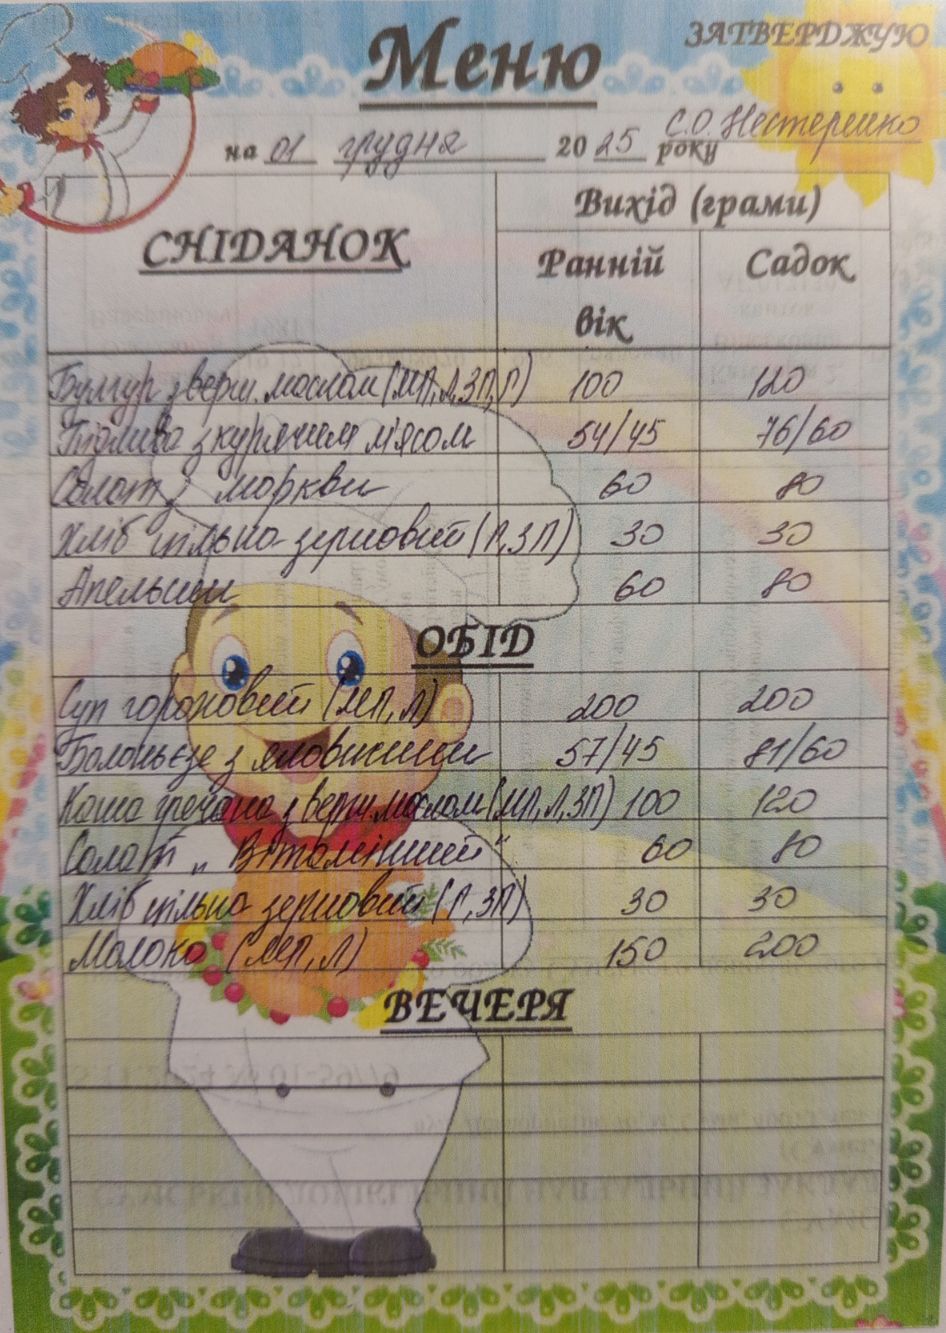 Меню
ЗАТВЕРДЖУЮ
С.О. Нестеренко
на 01 грудня 2025 року
СНІДАНОК
Вихід (грами)
Ранній вік
Садок
Булгур з верш. маслом (МП, Л, ЗП, Г) 100 120
Підлива з курячим м'ясом 54/45 76/60
Салат з моркви 60 80
Хліб цільно зерновий (Г, ЗП) 30 30
Апельсин 60 80
ОБІД
Суп гороховий (МП, Л) 200 200
Болоньєзе з яловичини 57/45 81/60
Каша гречана з верш. маслом (МП, Л, ЗП) 100 120
Салат „Вітамінний" 60 80
Хліб цільно зерновий (Г, ЗП) 30 30
Молоко (МП, Л) 150 200
ВЕЧЕРЯ